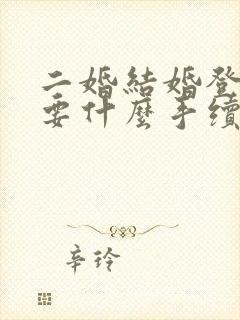 二婚結婚登
要什麼手續
辛玲